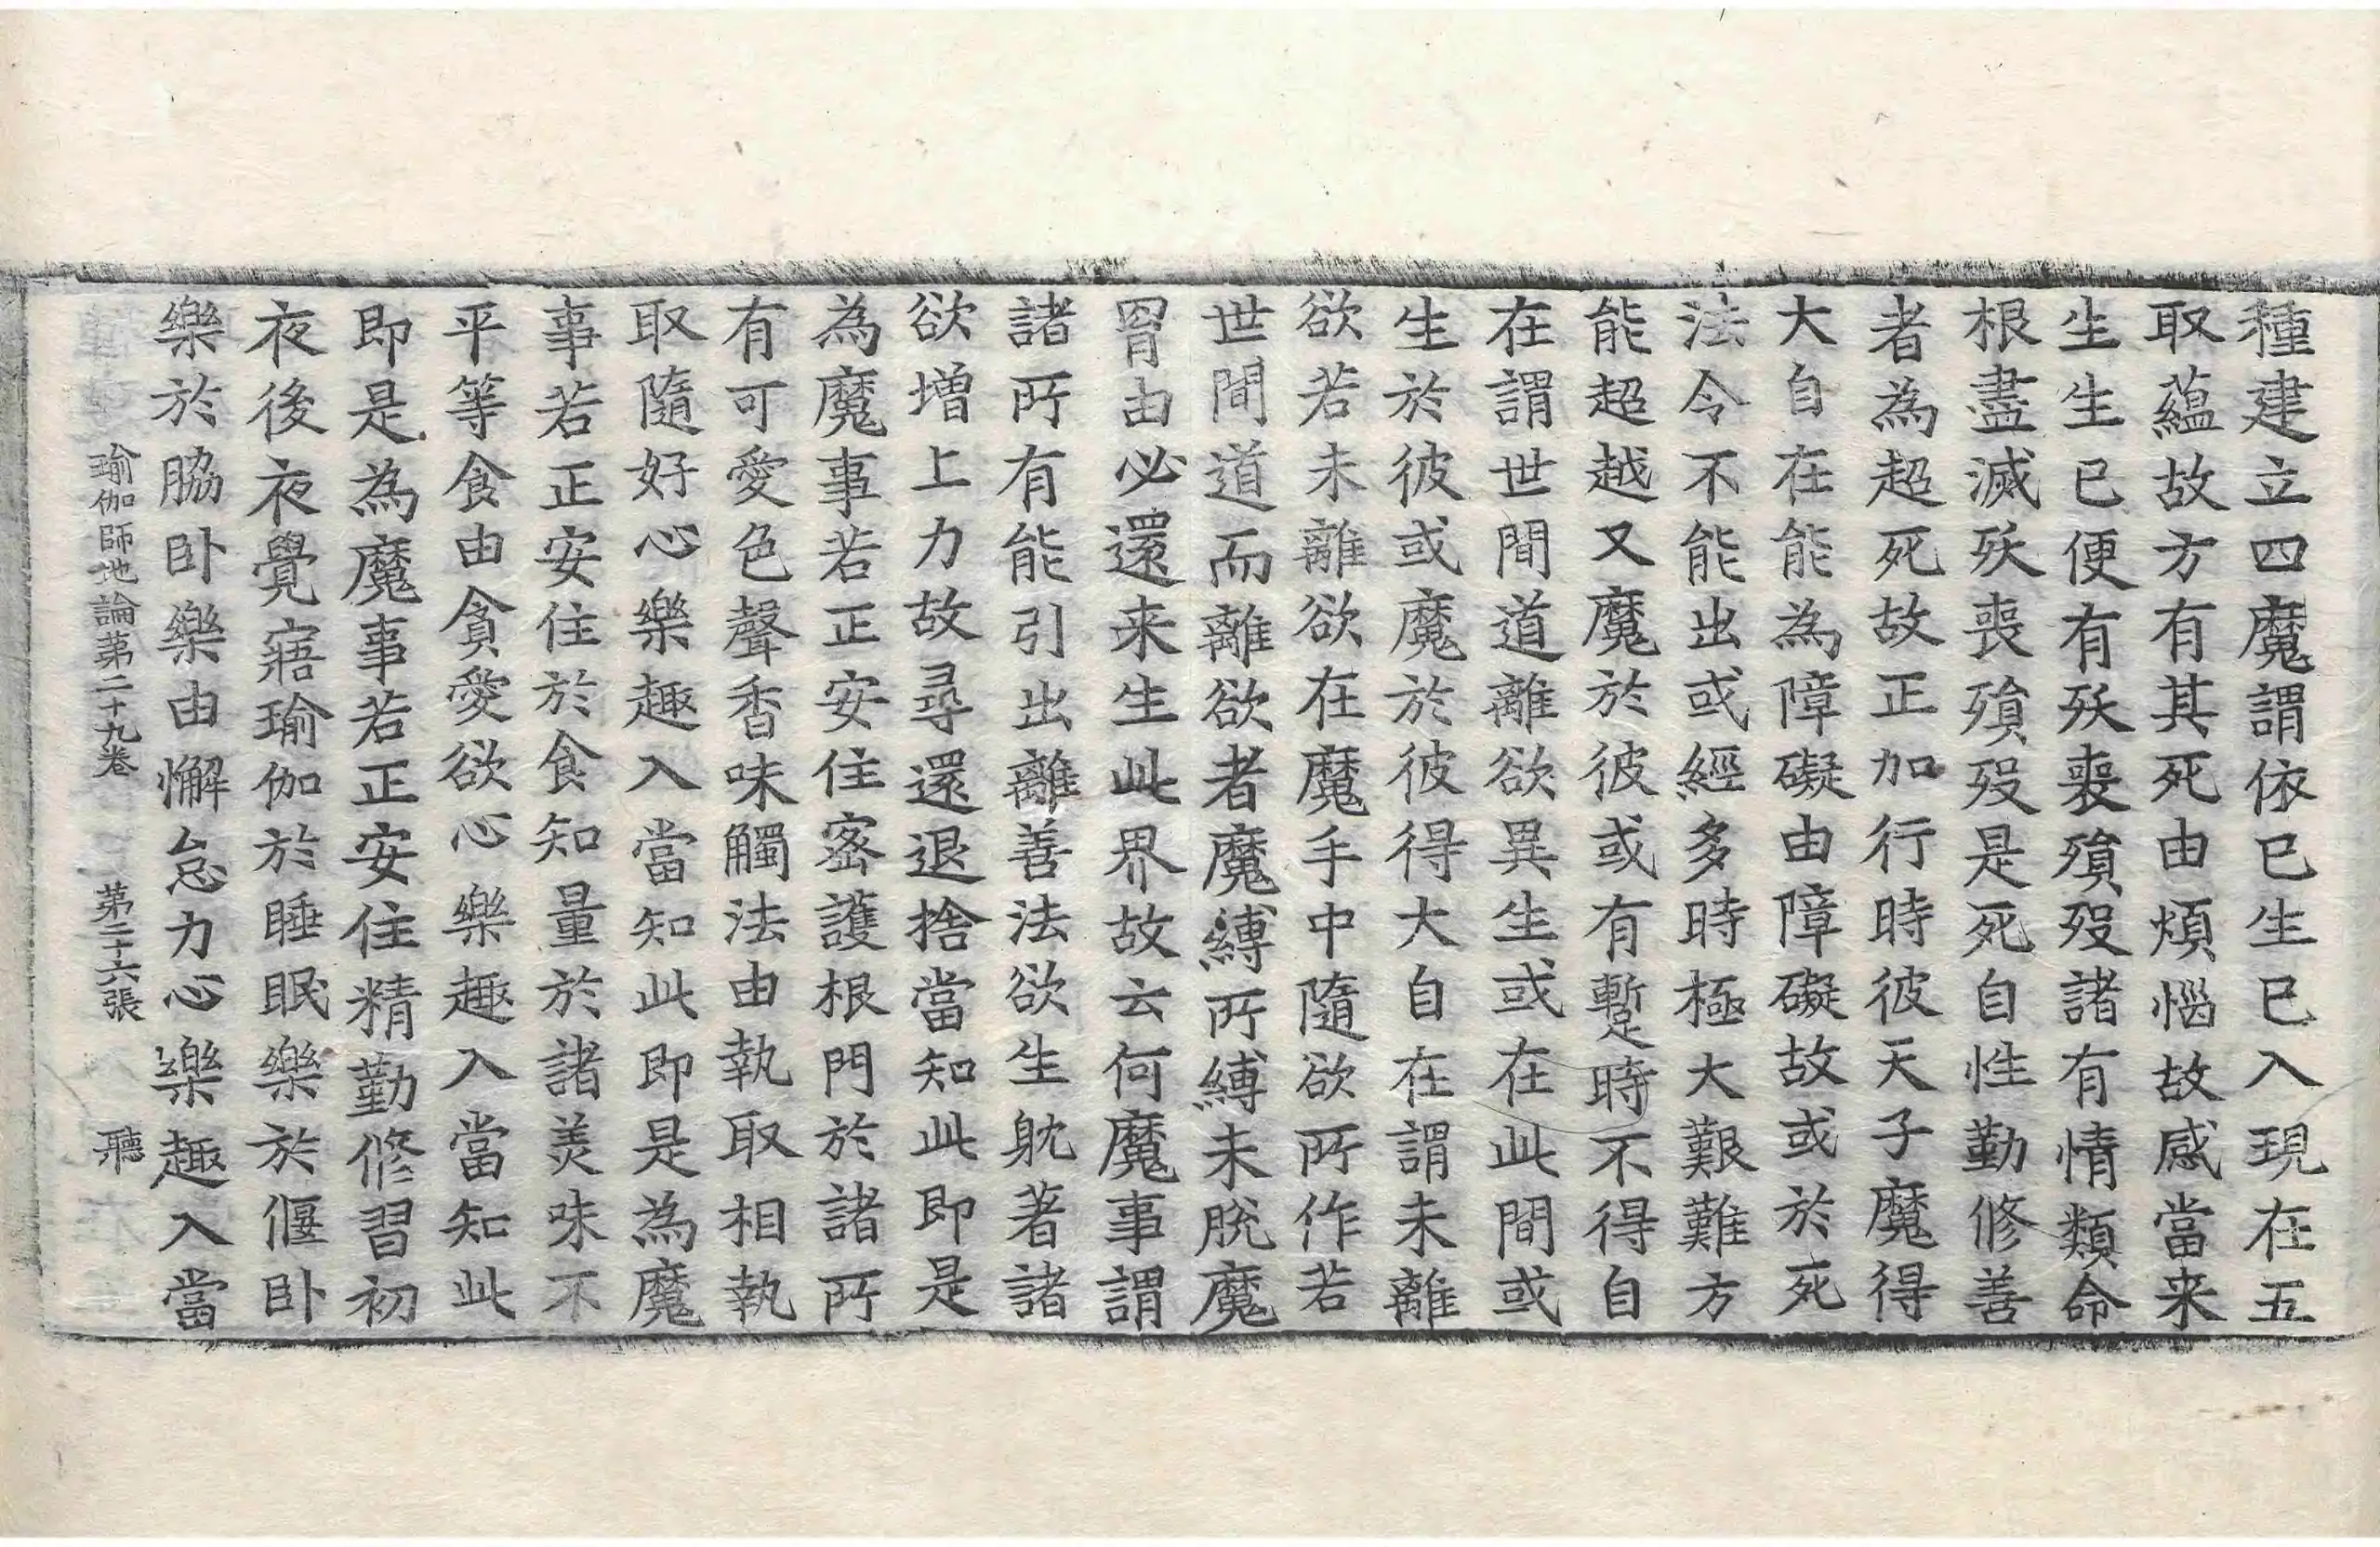 種建立四魔謂依已生已入現在五
取蘊故方有其死由煩惱故感當来
生生生已便有殀喪殞歿諸有情類命
根盡滅殀喪殞歿是死自性勤修善
者為超死故正加行時彼天子魔得
大自在能為障礙由障礙故或於死
法令不能出或經多時極大艱難方
能超越又魔於彼或有暫時不得自
在謂世間道離欲異生或在此間或
生於彼或魔於彼得大自在謂未離
欲若未離欲在魔手中隨欲所作若
世間道而離欲者魔縛所縛未脫魔
罥由必還来生此界故云何魔事謂
諸所有能引出離善法欲生躭著諸
欲增上力故尋還退捨當知此即是
為魔事若正安住密護根門於諸所
有可愛色聲香味觸法由執取相執
取隨好心樂趣入當知此即是為魔
事若正安住於食知量於諸美味不
平等食由貪愛欲心樂趣入當知此
即是為魔事若正安住精勤修習初
夜後夜覺寤瑜伽於睡眠樂於偃卧
樂於脇卧樂由懈怠力心樂趣入當
瑜伽師地論第二十九卷 第二十六張 聽